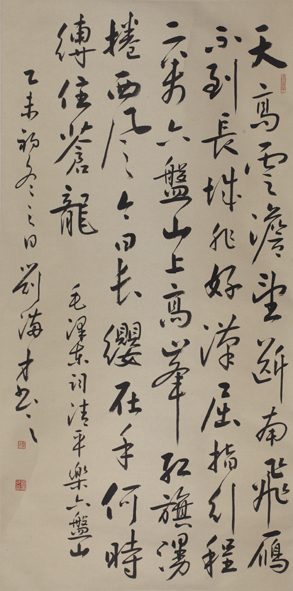 天高雲澹望斷南飛雁
不到長城非好漢屈指行程
二萬六盤山上高峯紅旗漫
捲西風今日長纓在手何時
縛住蒼龍
毛澤東詞清平樂六盤山
乙未初冬之日劉海才書